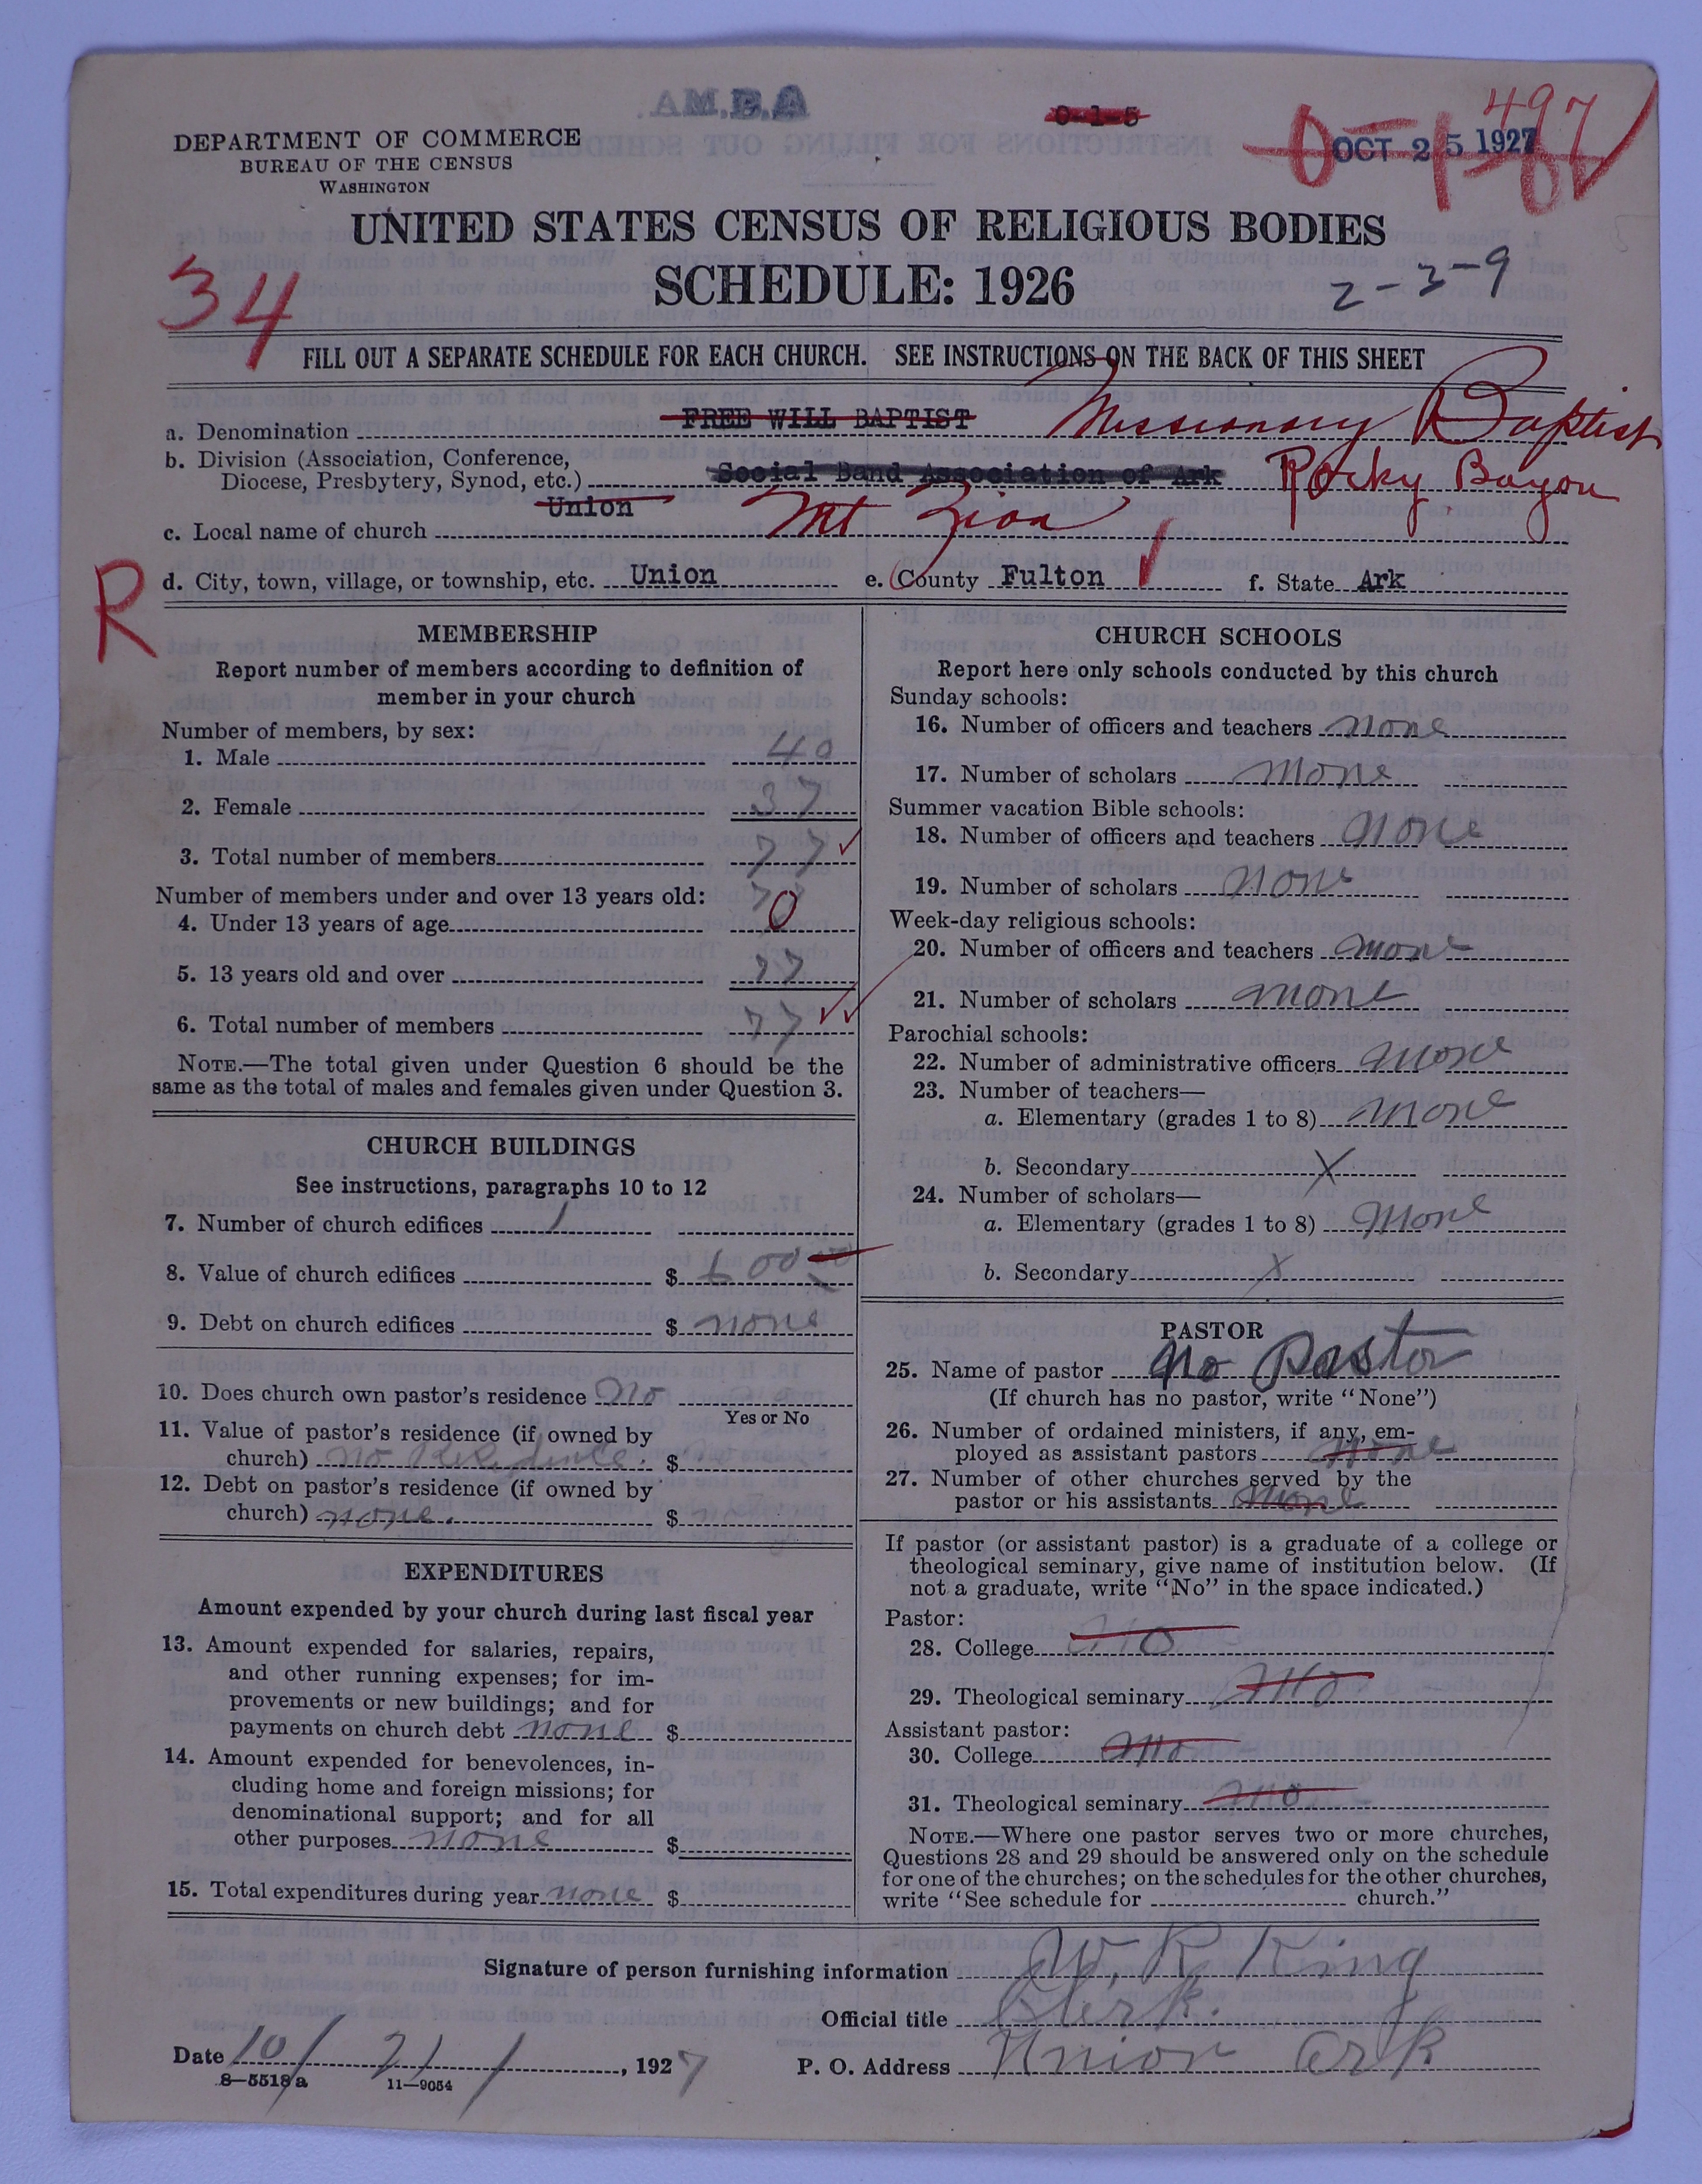 A.B.M.A.
0-1-5
497
OCT 25 1927
DEPARTMENT OF COMMERCE
BUREAU OF THE CENSUS
WASHINGTON
UNITED STATES CENSUS OF RELIGIOUS BODIES
SCHEDULE: 1926
2-3-9
34
FILL OUT A SEPARATE SCHEDULE FOR EACH CHURCH. SEE INSTRUCTIONS ON THE BACK OF THIS SHEET
a. Denomination FREE WILL BAPTIST Missionary Baptist
b. Division (Association, Conference,
Diocese, Presbytery, Synod, etc.) Social Band Association of Ark Rocky Bayou
c. Local name of church Union Mt Zion
R
d. City, town, village, or township, etc. Union e. County Fulton f. State Ark
MEMBERSHIP
Report number of members according to definition of
member in your church
Number of members, by sex:
1. Male 40
2. Female 37
3. Total number of members 77
Number of members under and over 13 years old:
4. Under 13 years of age 0
5. 13 years old and over 77
6. Total number of members 77
NOTE.—The total given under Question 6 should be the
same as the total of males and females given under Question 3.
CHURCH BUILDINGS
See instructions, paragraphs 10 to 12
7. Number of church edifices 1
8. Value of church edifices $
9. Debt on church edifices $ none
10. Does church own pastor's residence No
Yes or No
11. Value of pastor's residence (if owned by
church) no Residence. $
12. Debt on pastor's residence (if owned by
church) none. $
EXPENDITURES
Amount expended by your church during last fiscal year
13. Amount expended for salaries, repairs,
and other running expenses; for im-
provements or new buildings; and for
payments on church debt none $
14. Amount expended for benevolences, in-
cluding home and foreign missions; for
denominational support; and for all
other purposes none $
15. Total expenditures during year none $
CHURCH SCHOOLS
Report here only schools conducted by this church
Sunday schools:
16. Number of officers and teachers none
17. Number of scholars none
Summer vacation Bible schools:
18. Number of officers and teachers none
19. Number of scholars none
Week-day religious schools:
20. Number of officers and teachers none
21. Number of scholars none
Parochial schools:
22. Number of administrative officers none
23. Number of teachers—
a. Elementary (grades 1 to 8) none
b. Secondary X
24. Number of scholars—
a. Elementary (grades 1 to 8) none
b. Secondary X
PASTOR
25. Name of pastor No Pastor
(If church has no pastor, write "None")
26. Number of ordained ministers, if any, em-
ployed as assistant pastors none
27. Number of other churches served by the
pastor or his assistants none
If pastor (or assistant pastor) is a graduate of a college or
theological seminary, give name of institution below. (If
not a graduate, write "No" in the space indicated.)
Pastor:
28. College no
29. Theological seminary no
Assistant pastor:
30. College no
31. Theological seminary no
NOTE.—Where one pastor serves two or more churches,
Questions 28 and 29 should be answered only on the schedule
for one of the churches; on the schedules for the other churches,
write "See schedule for church."
Signature of person furnishing information W. R. King
Official title Clerk.
Date 10/21/, 1927 P. O. Address Union Ark
8—5518a 11—9054